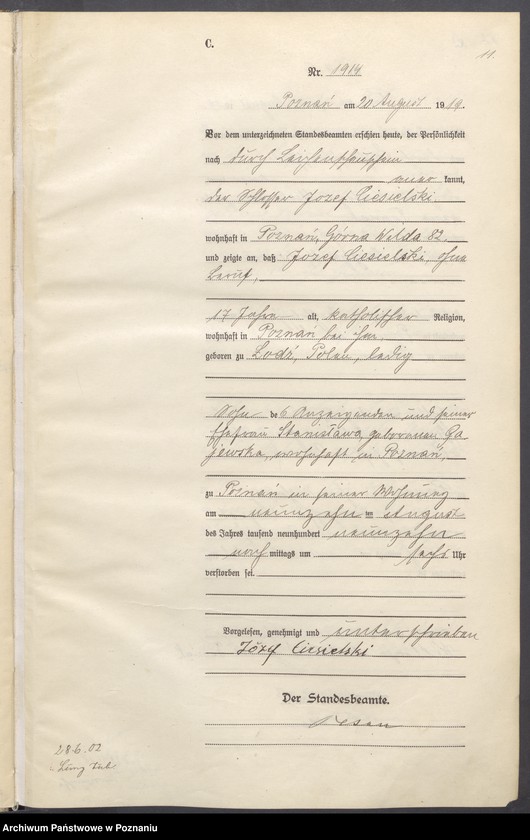 C.
11.
Nr. 1914
Poznań am 20 August 1919.
Vor dem unterzeichneten Standesbeamten erschien heute, der Persönlichkeit
nach durch
kannt,
der Schlosser Jozef Ciesielski
wohnhaft in Poznań, Górna Wilda 82.
und zeigte an, daß Jozef Ciesielski, ohne
Beruf,
17 Jahre alt, katholischer Religion,
wohnhaft in Poznań bei ihm
geboren zu Lodź, Polen, ledig
Sohn des Anzeigenden und seiner
Ehefrau Stanisława geborenen Ga
jewska, wohnhaft in Poznań,
zu Poznań in seiner Wohnung
am neunzehn ten August
des Jahres tausend neunhundert neunzehn
nach mittags um sechs Uhr
verstorben sei.
Vorgelesen, genehmigt und unterschrieben
Józef Ciesielski
Der Standesbeamte.
28.6.02
Archiwum Państwowe w Poznaniu